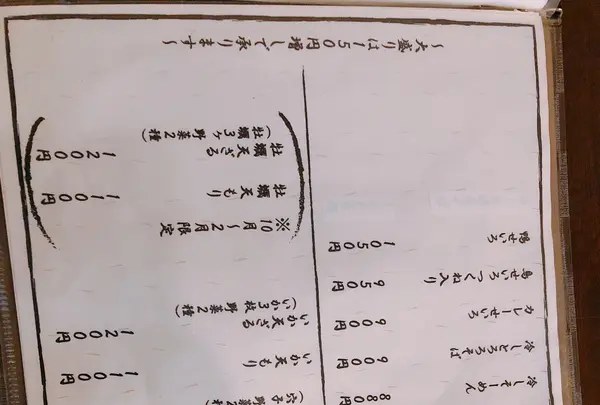 冷しそーめん 880円
冷しとろろそば 900円
カレーせいろ 900円
鳥せいろつくね入り 950円
鴨せいろ 1050円
(穴子 野菜2種)
いか天もり 1100円
いか天ざる 1200円
(いか3枚野菜2種)
※10月~2月限定
牡蠣天もり 1100円
牡蠣天ざる 1200円
(牡蠣3ヶ野菜2種)
~大盛りは150円増しで承ります~